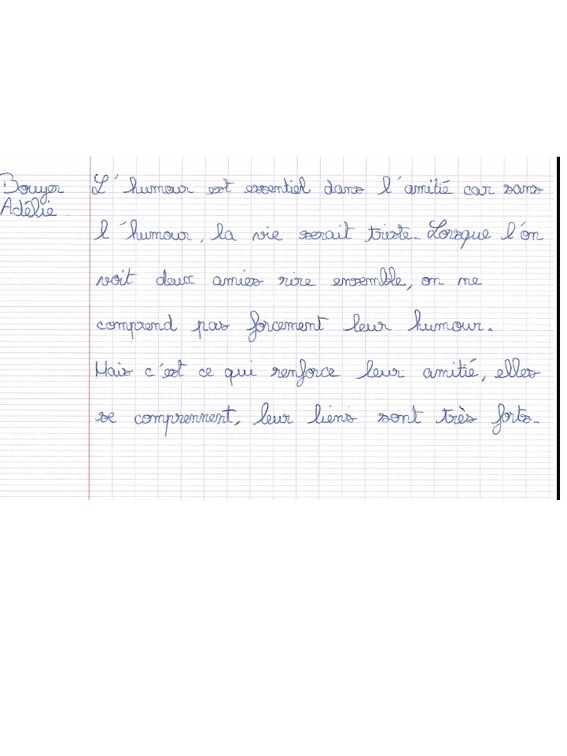 Bouyer
Adélie
L'humour est essentiel dans l'amitié car sans
l'humour, la vie serait triste. Lorsque l'on
voit deux amies rire ensemble, on ne
comprend pas forcement leur humour.
Mais c'est ce qui renforce leur amitié, elles
se comprennent, leur liens sont très forts.